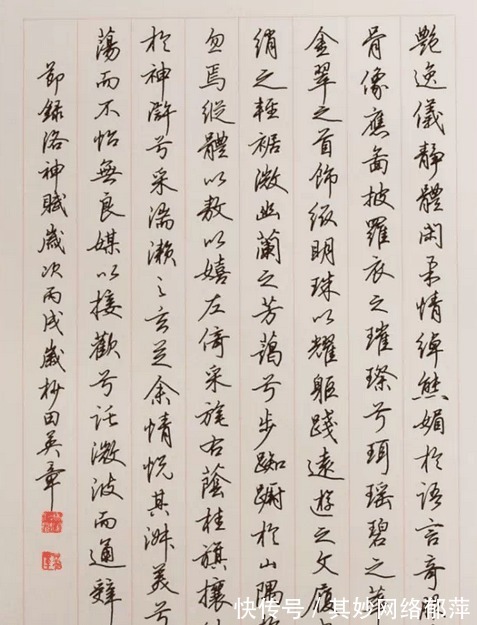 艷逸儀靜體閑柔情綽態媚於語言奇
骨像應圖披羅衣之璀璨兮珥瑤碧之華
金翠之首飾綴明珠以耀軀踐遠遊之文履
綃之輕裾微幽蘭之芳藹兮步踟躕於山隅
忽焉縱體以敖以嬉左倚采旄右蔭桂旗攘
於神滸兮采湍瀨之玄芝余情悅其淑美兮
蕩而不怡無良媒以接歡兮託微波而通辭
節錄洛神賦歲次丙戌歲杪田英章
快传号 / 其妙网络郁萍